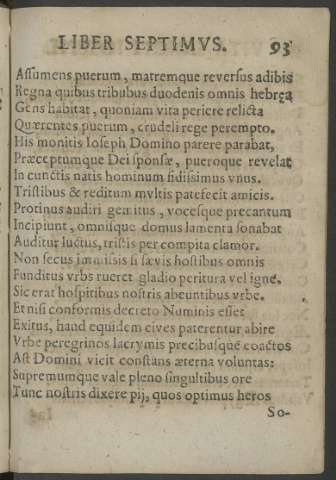 LIBER SEPTIMVS. 93
Assumens puerum, matremque reversus adibis
Regna quibus tribubus duodenis omnis hebręa
Gens habitat, quoniam vita periere relicta
Quærentes puerum, crudeli rege perempto.
His monitis Ioseph Domino parere parabat,
Præceptumque Dei sponsæ, pueroque revelat
In cunctis natis hominum fidissimus vnus.
Tristibus & reditum mvltis patefecit amicis.
Protinus audiri gemitus, vocesque precantum
Incipiunt, omnisque domus lamenta sonabat
Auditur luctus, tristis per compita clamor.
Non secus immissis si sævis hostibus omnis
Funditus vrbs rueret gladio peritura vel igne.
Sic erat hospitibus nostris abeuntibus vrbe.
Et nisi conformis decreto Numinis esset
Exitus, haud equidem cives paterentur abire
Vrbe peregrinos lacrymis precibusque coactos
Ast Domini vicit constans æterna voluntas:
Supremumque vale pleno singultibus ore
Tunc nostris dixere pij, quos optimus heros
So-